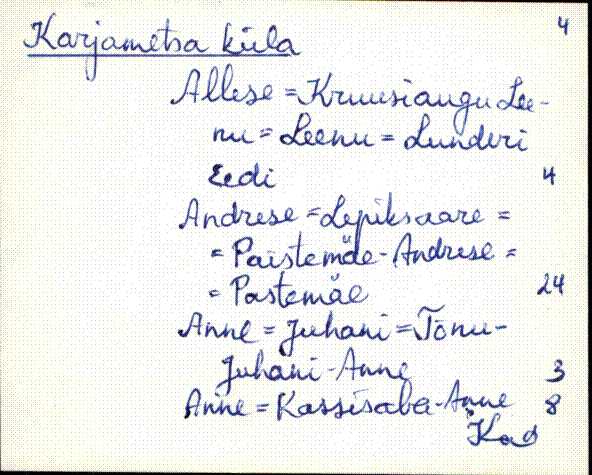 4
Karjametsa küla
Allese = Kruusiaugu Lee-
nu = Leenu = Lunderi
Eedi 4
Andrese = Lepiksaare =
= Paistemäe-Andrese =
= Pastemäe 24
Anne = Juhani = Tõnu-
Juhani-Anne 3
Anne = Kassisaba-Anne 8